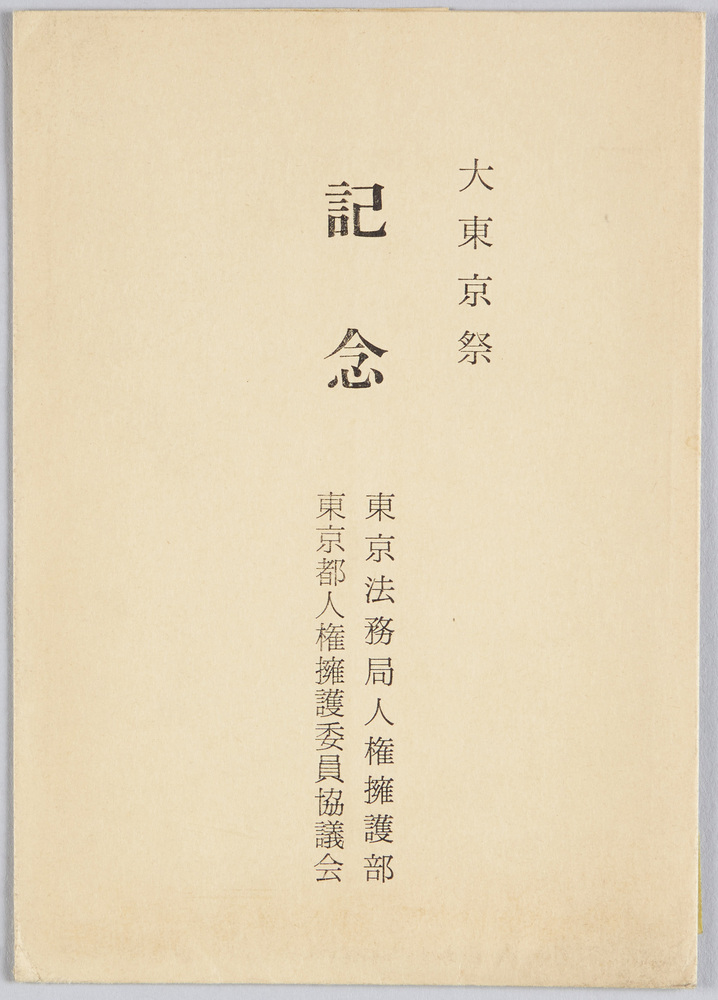 大東京祭
記念
東京法務局人権擁護部
東京都人権擁護委員協議会